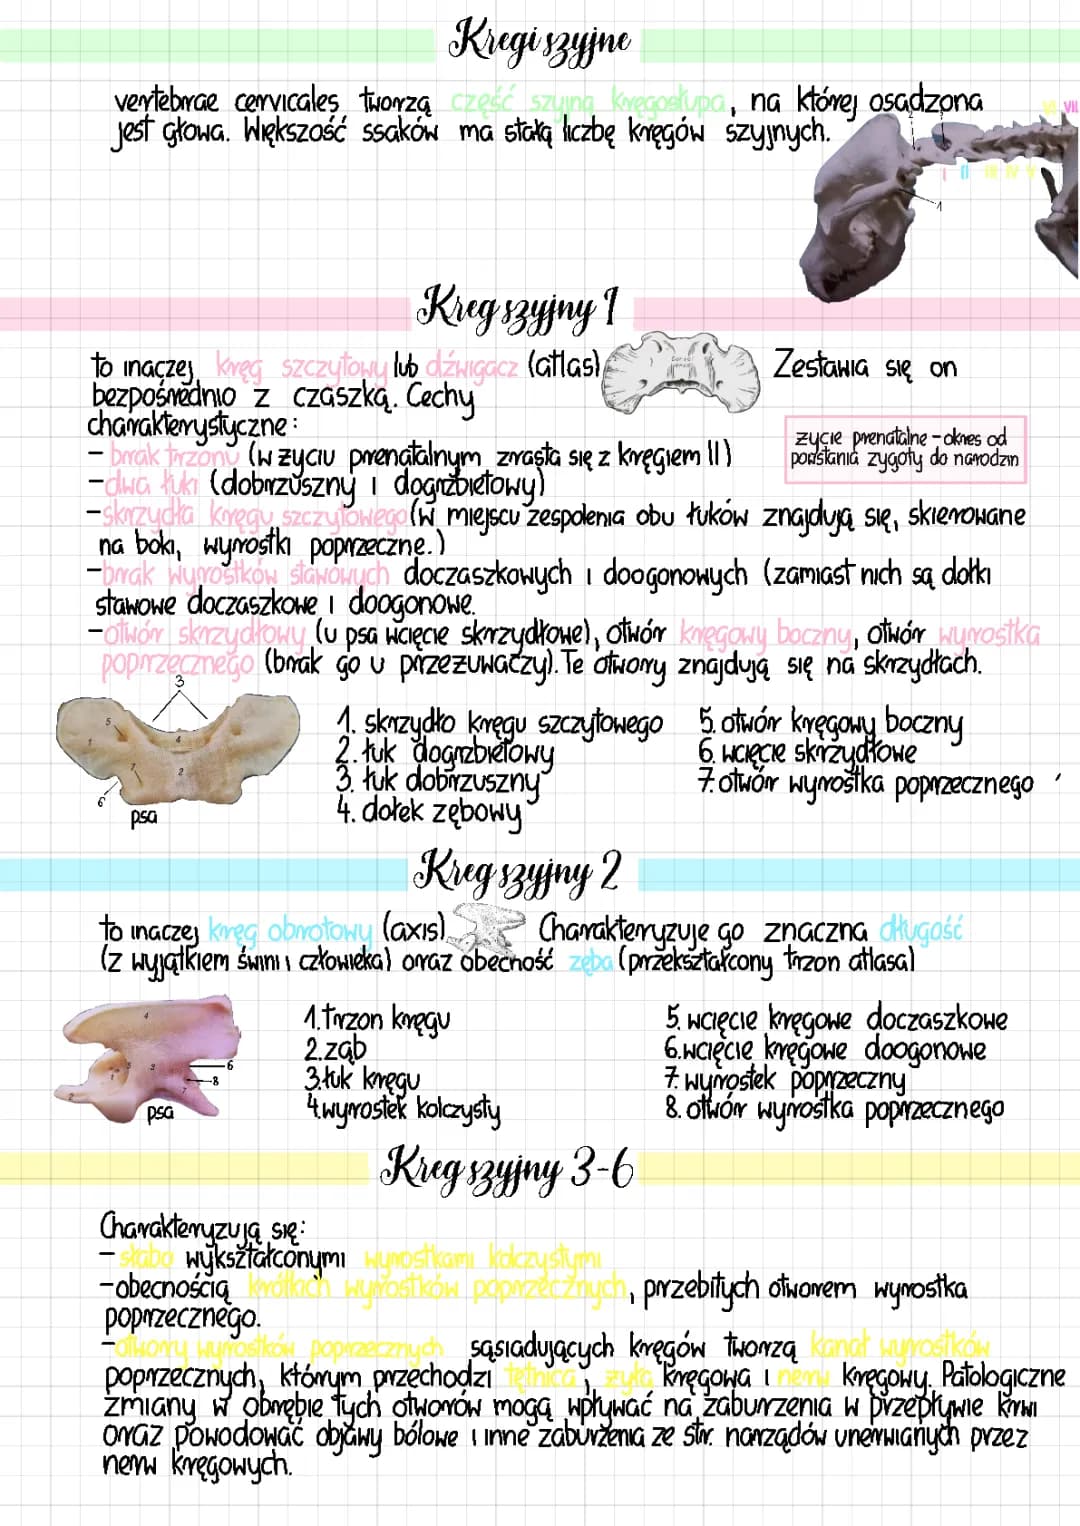 Kregi szyjne
vertebrae cervicales tworzą część szyjną kręgosłupa, na której osadzona
jest głowa. Większość ssaków ma stałą liczbę kręgów szyjnych.
VII
I II III IV V
1
Kreg szyjny 1
to inaczej kręg szczytowy lub dźwigacz (atlas) Zestawia się on
bezpośrednio z czaszką. Cechy
charakterystyczne:
życie prenatalne - okres od
powstania zygoty do narodzin
- brak trzonu (w życiu prenatalnym zrasta się z kręgiem II)
- dwa łuki (dobrzuszny i dogrzbietowy)
- skrzydła kręgu szczytowego (w miejscu zespolenia obu łuków znajdują się, skierowane
na boki, wyrostki poprzeczne.)
- brak wyrostków stawowych doczaszkowych i doogonowych (zamiast nich są dołki
stawowe doczaszkowe i doogonowe.
- otwór skrzydłowy (u psa wcięcie skrzydłowe), otwór kręgowy boczny, otwór wyrostka
poprzecznego (brak go u przeżuwaczy). Te otwory znajdują się na skrzydłach.
3
5
1
4
7
2
6
psa
1. skrzydło kręgu szczytowego
2. łuk dogrzbietowy
3. łuk dobrzuszny
4. dołek zębowy
5. otwór kręgowy boczny
6. wcięcie skrzydłowe
7. otwór wyrostka poprzecznego
Kreg szyjny 2
to inaczej kręg obrotowy (axis). Charakteryzuje go znaczna długość
(z wyjątkiem świni i człowieka) oraz obecność zęba (przekształcony trzon atlasa)
4
5
3
1
2
6
8
7
psa
1. trzon kręgu
2. ząb
3. łuk kręgu
4. wyrostek kolczysty
5. wcięcie kręgowe doczaszkowe
6. wcięcie kręgowe doogonowe
7. wyrostek poprzeczny
8. otwór wyrostka poprzecznego
Kreg szyjny 3-6
Charakteryzują się:
- słabo wykształconymi wyrostkami kolczystymi
- obecnością krótkich wyrostków poprzecznych, przebitych otworem wyrostka
poprzecznego.
- otwory wyrostków poprzecznych sąsiadujących kręgów tworzą kanał wyrostków
poprzecznych, którym przechodzi tętnica, żyła kręgowa i nerw kręgowy. Patologiczne
zmiany w obrębie tych otworów mogą wpływać na zaburzenia w przepływie krwi
oraz powodować objawy bólowe i inne zaburzenia ze str. narządów unerwianych przez
nerw kręgowych.